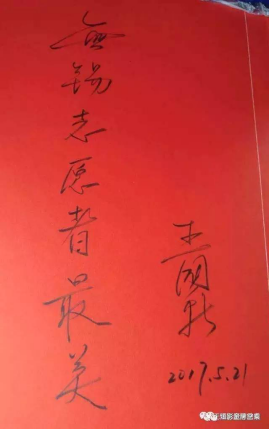 無锡志愿者最美
王国新
2017.5.21